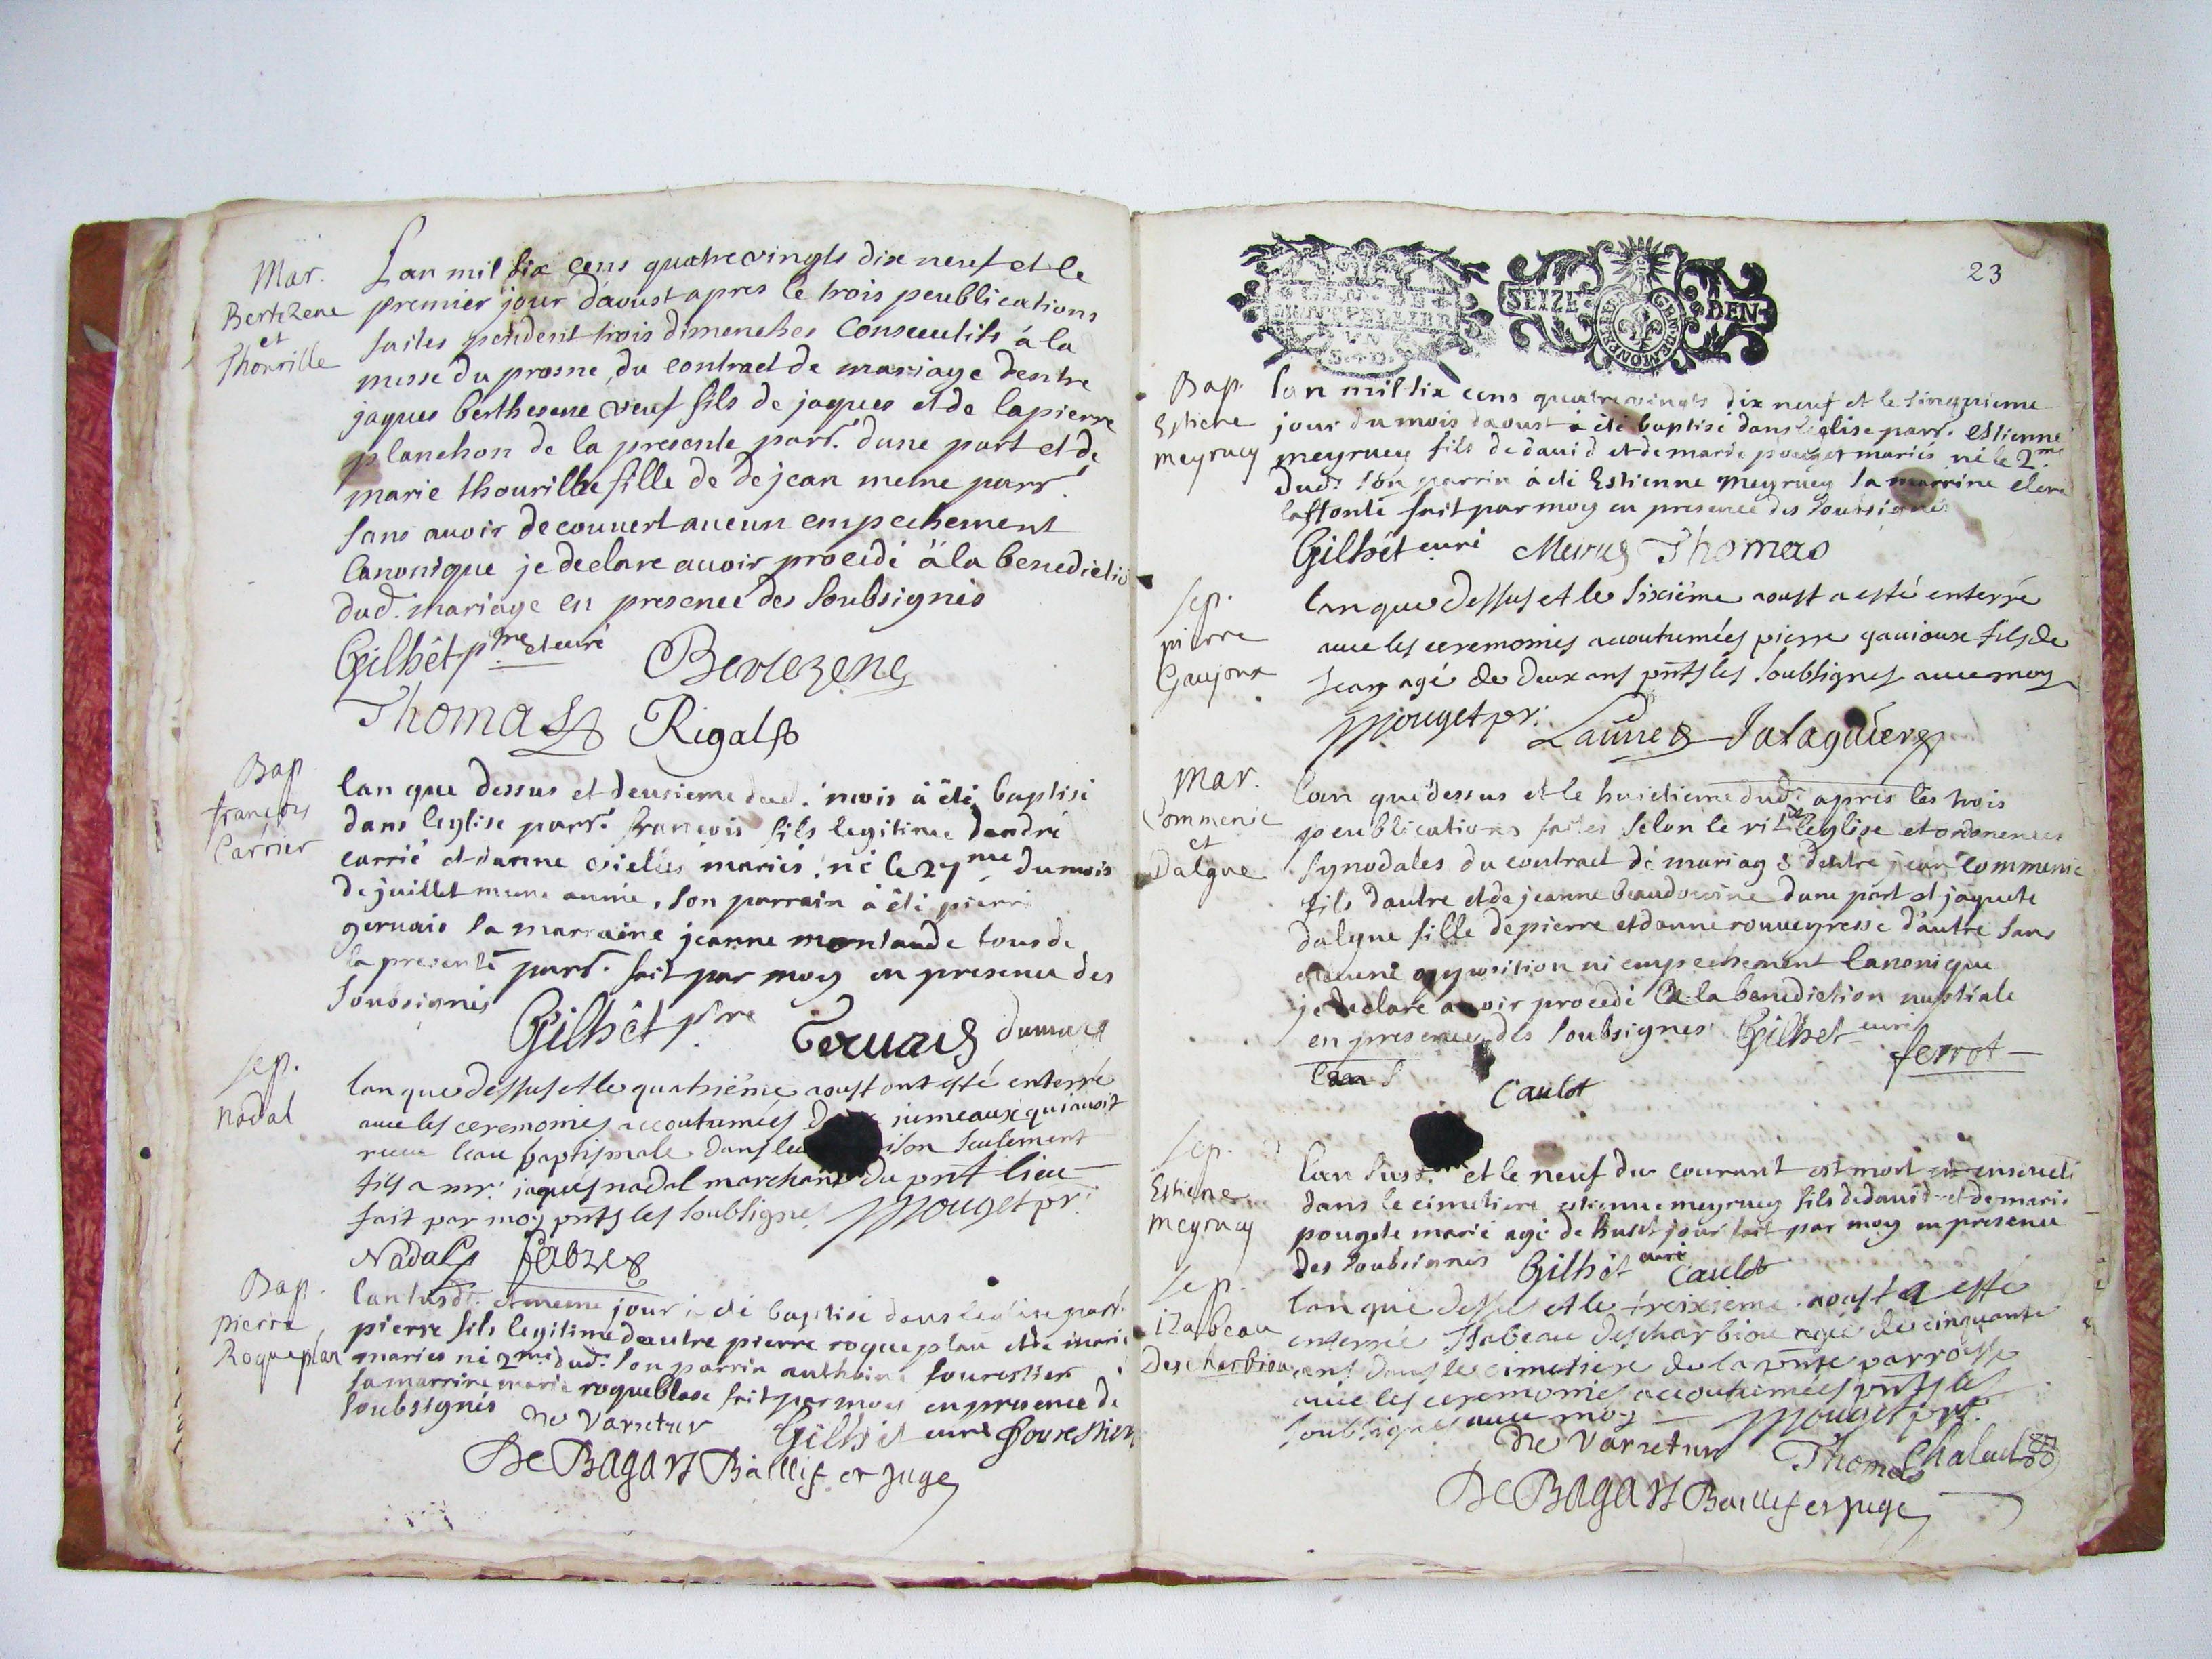 Mar.
Bertezene
et
Thourille
Lan mil six cens quatrevingts dix neuf et le
premier jour d'aoust apres le trois peublications
faites pendent trois dimenches consecutifs á la
messe du prosne, du contract de mariage dentre
jaques berthesene veuf fils de jaques et de lapierre
planchon de la presente parr. dune part et de
marie thourille fille de de jean meme parr.
sans avoir decouvert aucun empechement
Canonique je declare avoir procedé á la benedictio
dud. mariage en presence des soubsignés
Gilhêt ptre et curé Bertezene
Thomas Rigal
Bap
françois
Carrier
lan que dessus et deusieme dud. mois á été baptisé
dans leglise parr. françois fils legitime dandré
carrié et danne mariés, né le 27me du mois
de juillet meme année, son parrain á été pierre
gervais sa marraine jeanne montaude tous de
la presente parr. fait par moy en presence des
soubsignés
Gilhêt ptre Gervais dumas
sep.
nadal
lan que dessus et le quatriéme aoust ont esté enterré
avec les ceremonies accoutumées jumeaux qui avoit
receu leau baptismale dans seulement
fils a mr. jaques nadal marchant du pnt lieu
fait par moy pnts les soubsignes Mouget pr.
Nadal fabre
Bap.
pierre
Roqueplan
lan susd. et meme jour á été baptisé dans leglise parr.
pierre fils legitime dautre pierre roqueplan et de marie
mariés né 2me dud. son parrin anthoine fourestier
sa marrine marie roqueblave fait par moy en presence de
soubsignés
Ne Varietur Gilhêt curé fourestier
De Bagars Baillif et juge
23
GEN. DE
MONTPELLIER
SEIZE DEN.
Bap
Estiene
meyruey
lan mil six cens quatrevingts dix neuf et le sinquieme
jour du mois daoust á été baptisé dans leglise parr. estienne
meyruey fils de david et de marie pouget mariés né le 2me
dud. son parrin á été Estienne meyruey sa marrine
laffont fait par moy en presence des soubsignés
Gilhêt curé Thomas
sep.
pierre
Gaujoux
lan que dessus et le sixiéme aoust a esté enterré
avec les ceremonies accoutumées pierre gauioux fils de
jean agé de deux ans pnts les soubsignes avec moy
Mouget pr. Laune Jalaguier
mar.
Commenie
et
Dalgue
lan que dessus et le huictieme dud. apres les trois
peublications faites selon le rit de leglise et ordonences
synodales du contract de mariage dentre jean commenie
fils dautre et de jeanne beaudouine dune part et jaquete
dalgue fille de pierre et danne rouveyresse d'autre sans
aucune opposition ni empechement canonique
je declare avoir procedé a la benediction nuptiale
en presence des soubsignes Gilhêt curé
ferrot
Caulet
sep.
Estiene
meyruey
lan susd. et le neuf du courant est mort et enseveli
dans le cimetiere estienne meyruey fils de david et de marie
pougete marié agé de huict jour fait par moy en presence
des soubsignés Gilhêt curé Caulet
sep.
izabeau
descharbiou
lan que dessus et le treixieme aoust a esté
enterrée Isabeau descharbiou agée de cinquante
ans dans le cimetiere de la pnte parroisse
avec les ceremonies accoutumées pnts les
soubsignes avec moy Mouget ptr.
Ne Varietur Thomas Chalad
De Bagars Baillif et juge